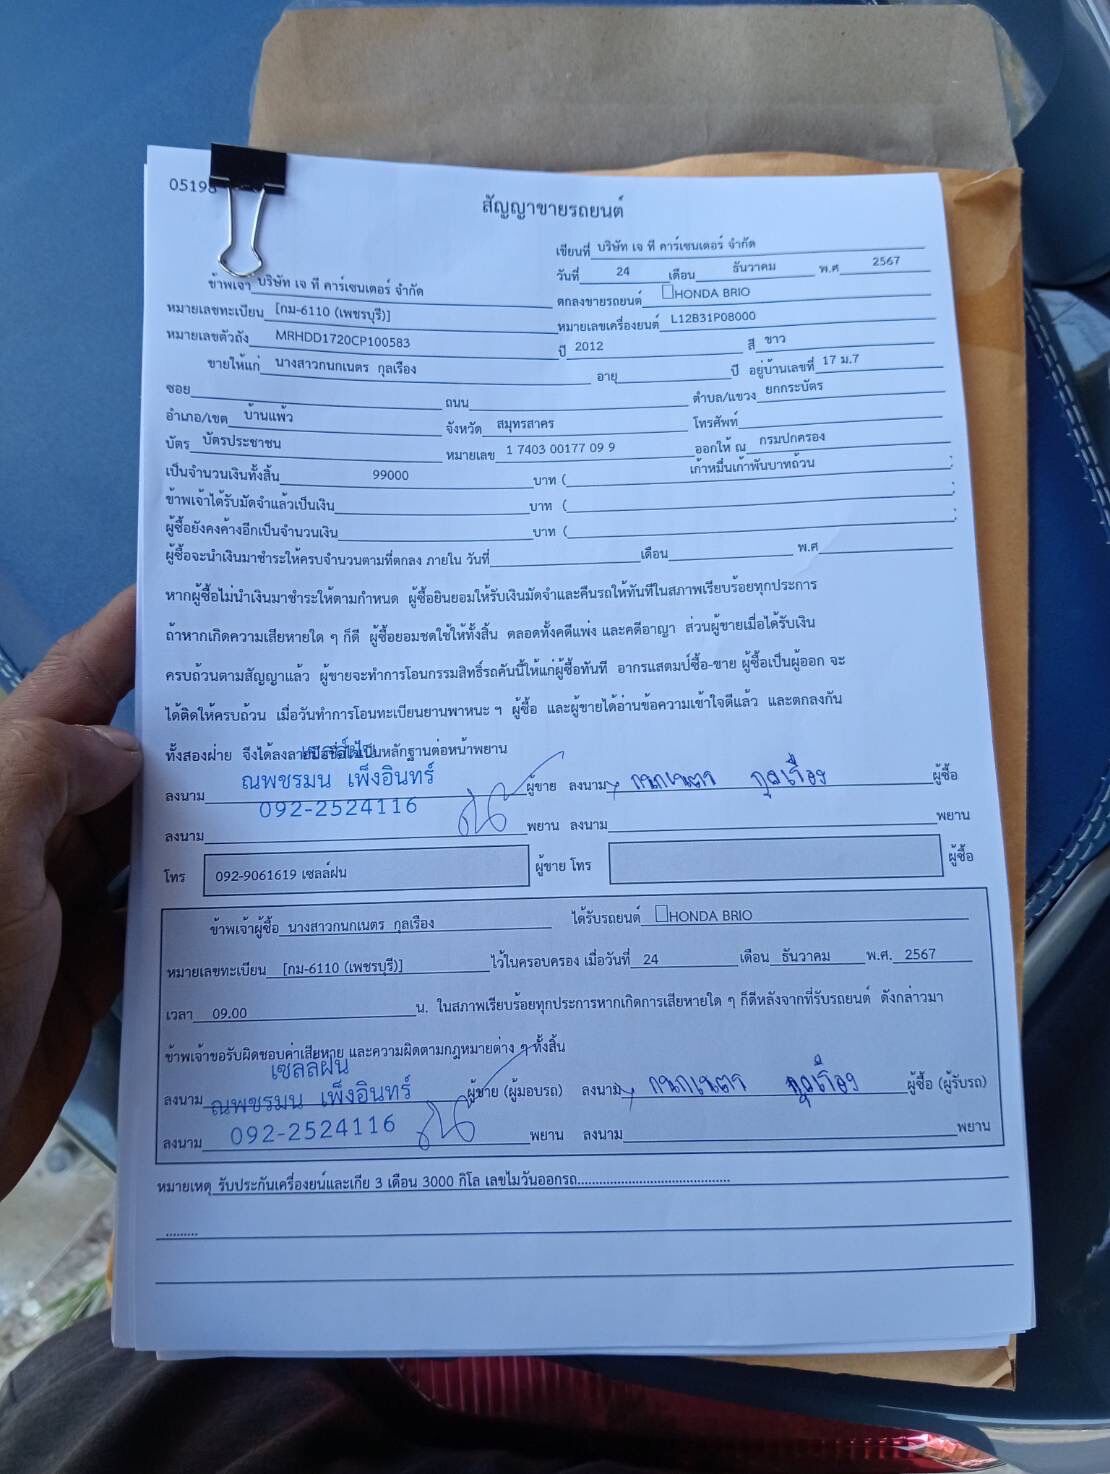 0519
สัญญาขายรถยนต์
เขียนที่ บริษัท เจ ที คาร์เซนเตอร์ จำกัด
วันที่ 24 เดือน ธันวาคม พ.ศ 2567
ข้าพเจ้า บริษัท เจ ที คาร์เซนเตอร์ จำกัด ตกลงขายรถยนต์ HONDA BRIO
หมายเลขทะเบียน [กม-6110 (เพชรบุรี)] หมายเลขเครื่องยนต์ L12B31P08000
หมายเลขตัวถัง MRHDD1720CP100583 ปี 2012 สี ขาว
ขายให้แก่ นางสาวกนกเนตร กุลเรือง อายุ ปี อยู่บ้านเลขที่ 17 ม.7
ซอย ถนน ตำบล/แขวง ยกกระบัตร
อำเภอ/เขต บ้านแพ้ว จังหวัด สมุทรสาคร โทรศัพท์
บัตร บัตรประชาชน หมายเลข 1 7403 00177 09 9 ออกให้ ณ กรมปกครอง
เป็นจำนวนเงินทั้งสิ้น 99000 บาท ( เก้าหมื่นเก้าพันบาทถ้วน
ข้าพเจ้าได้รับมัดจำแล้วเป็นเงิน บาท (
ผู้ซื้อยังคงค้างอีกเป็นจำนวนเงิน บาท (
ผู้ซื้อจะนำเงินมาชำระให้ครบจำนวนตามที่ตกลง ภายใน วันที่ เดือน พ.ศ
หากผู้ซื้อไม่นำเงินมาชำระให้ตามกำหนด ผู้ซื้อยินยอมให้รับเงินมัดจำและคืนรถให้ทันทีในสภาพเรียบร้อยทุกประการ
ถ้าหากเกิดความเสียหายใด ๆ ก็ดี ผู้ซื้อยอมชดใช้ให้ทั้งสิ้น ตลอดทั้งคดีแพ่ง และคดีอาญา ส่วนผู้ขายเมื่อได้รับเงิน
ครบถ้วนตามสัญญาแล้ว ผู้ขายจะทำการโอนกรรมสิทธิ์รถคันนี้ให้แก่ผู้ซื้อทันที อากรแสตมป์ซื้อ-ขาย ผู้ซื้อเป็นผู้ออก จะ
ได้ติดให้ครบถ้วน เมื่อวันทำการโอนทะเบียนยานพาหนะ ฯ ผู้ซื้อ และผู้ขายได้อ่านข้อความเข้าใจดีแล้ว และตกลงกัน
ทั้งสองฝ่าย จึงได้ลงลายมือชื่อไว้เป็นหลักฐานต่อหน้าพยาน
ลงนาม ณพชรมน เพ็งอินทร์ ผู้ขาย ลงนาม กนกเนตร กุลเรือง ผู้ซื้อ
092-2524116
ลงนาม พยาน ลงนาม พยาน
โทร 092-9061619 เซลล์ฝน ผู้ขาย โทร ผู้ซื้อ
ข้าพเจ้าผู้ซื้อ นางสาวกนกเนตร กุลเรือง ได้รับรถยนต์ HONDA BRIO
หมายเลขทะเบียน [กม-6110 (เพชรบุรี)] ไว้ในครอบครอง เมื่อวันที่ 24 เดือน ธันวาคม พ.ศ. 2567
เวลา 09.00 น. ในสภาพเรียบร้อยทุกประการหากเกิดการเสียหายใด ๆ ก็ดีหลังจากที่รับรถยนต์ ดังกล่าวมา
ข้าพเจ้าขอรับผิดชอบค่าเสียหาย และความผิดตามกฎหมายต่าง ๆ ทั้งสิ้น
เซลล์ฝน
ลงนาม ณพชรมน เพ็งอินทร์ ผู้ขาย (ผู้มอบรถ) ลงนาม กนกเนตร กุลเรือง ผู้ซื้อ (ผู้รับรถ)
ลงนาม 092-2524116 พยาน ลงนาม พยาน
หมายเหตุ รับประกันเครื่องยน์และเกีย 3 เดือน 3000 กิโล เลขไมวันออกรถ............................................
.........